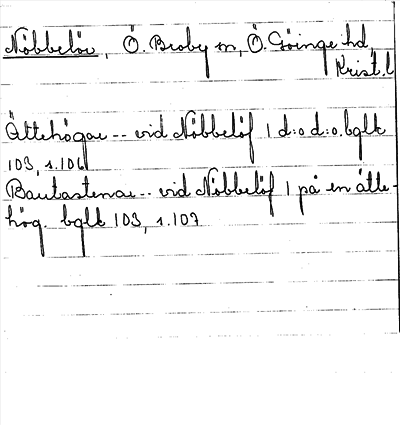 Nöbbelöv, Ö. Broby sn, Ö. Göinge hd,
Krist. l
Ättehögar -- vid Nöbbelöf 1 d:o d:o. bglk
103, s.106
Bautastenar -- vid Nöbbelöf 1 på en ätte-
hög. bglk 103, s.107